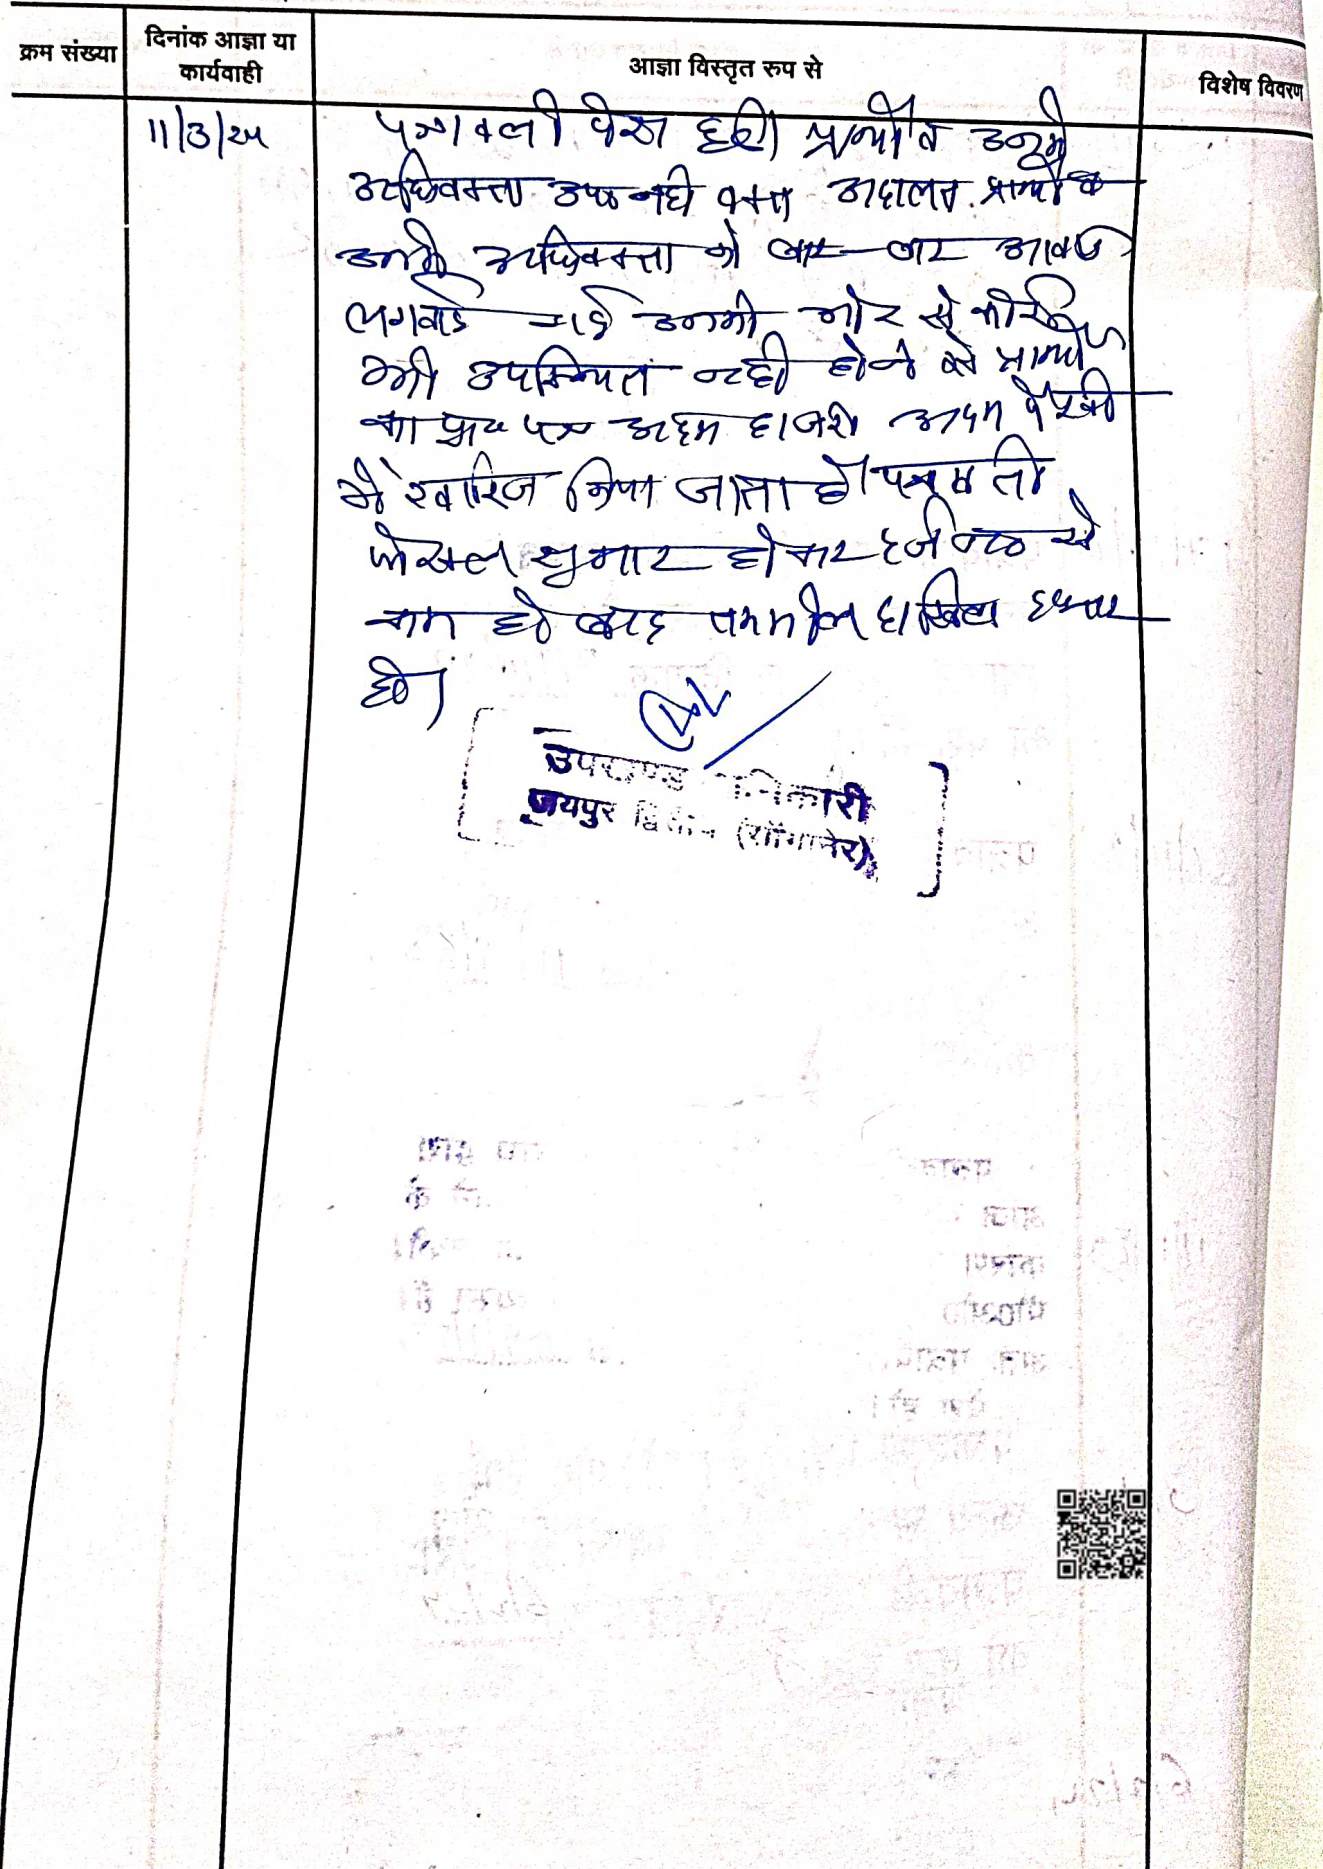 क्रम संख्या
दिनांक आज्ञा या
कार्यवाही
आज्ञा विस्तृत रुप से
विशेष विवरण
11/3/25
पत्रावली पेश हुई। प्रार्थी व उनके
अधिवक्ता उप० नहीं वक्त अदालत प्रार्थी व
उनके अधिवक्ता को बार-बार आवाज
लगवाई गई उनकी ओर से कोई
भी उपस्थित नही होने से प्रार्थी
का प्रा० पत्र अदम हाजरी अदम पैरवी
में खारिज किया जाता है। पत्रावली
फैसल शुमार होकर दर्ज न० से
कम हो बाद तकमील दाखिल दफ्तर
हो।
उपखण्ड अधिकारी
जयपुर द्वितीय (सॉंगानेर)